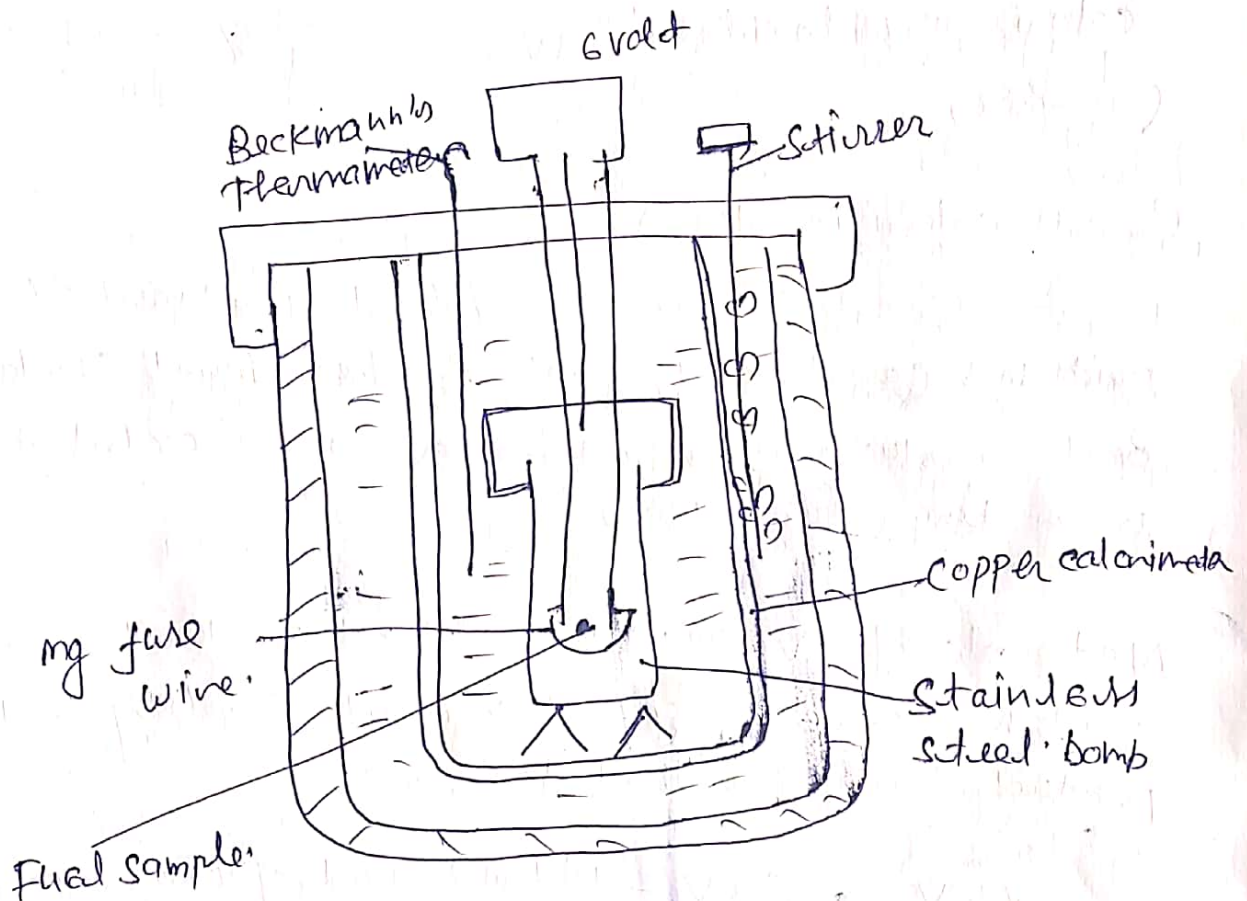 6 volt
Beckmann's
thermometer
Stirrer
copper calorimeter
mg fuse
wire.
Stainless
steel bomb
Fuel sample.